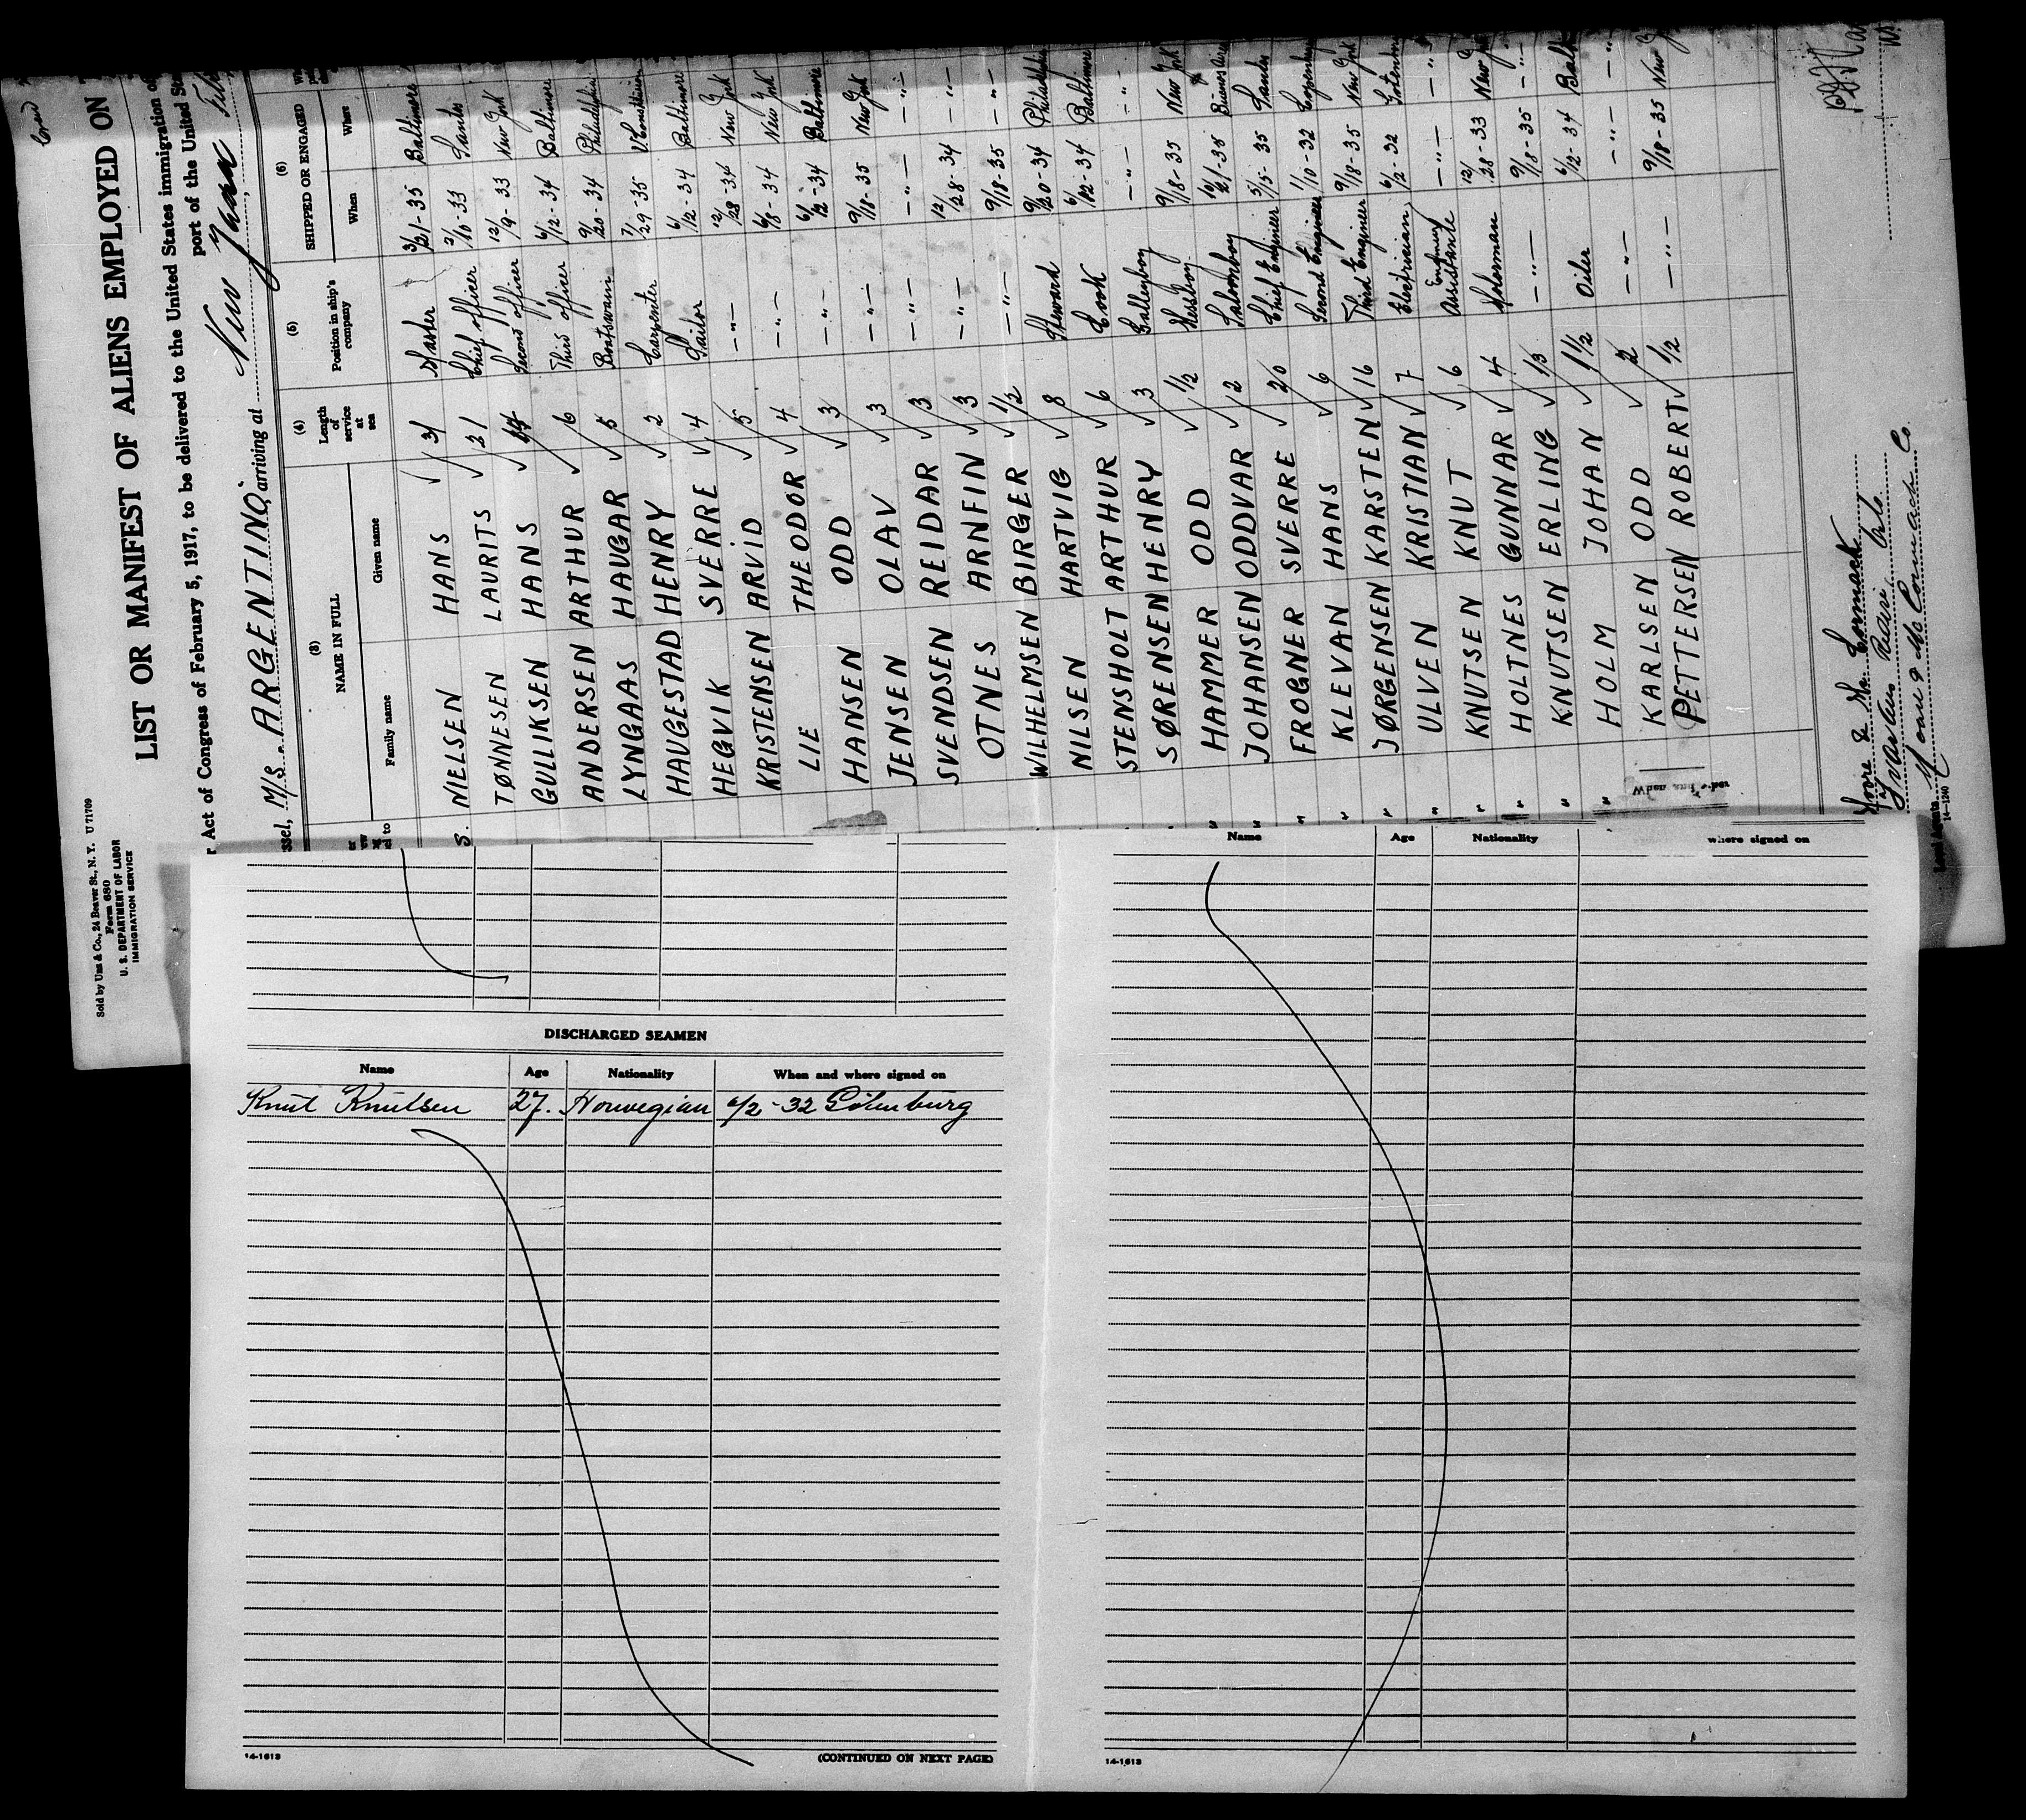 Sold by Unz & Co., 24 Beaver St., N. Y. U 71709
Form 680
U. S. DEPARTMENT OF LABOR
IMMIGRATION SERVICE
LIST OR MANIFEST OF ALIENS EMPLOYED ON
Act of Congress of February 5, 1917, to be delivered to the United States immigration
port of the United
M/s. ARGENTINO, arriving at New York
(3) (4) (5) (6)
NAME IN FULL Length of service at sea Position in ship's company SHIPPED OR ENGAGED
Family name Given name When Where
NIELSEN HANS 31 Master 3/21-35 Baltimore
TØNNESEN LAURITS 21 Chief officer 2/10-33 Santos
GULLIKSEN HANS Second officer 12/9-33 New York
ANDERSEN ARTHUR 6 Third officer 6/12-34 Baltimore
LYNGAAS HAUGAR 5 Boatswain 9/20-34 Philadelphia
HAUGESTAD HENRY 2 Carpenter 7/29-35
HEGVIK SVERRE 4 Sailor 6/12-34 Baltimore
KRISTENSEN ARVID 5 -"- 12/28-34 New York
LIE THEODOR 4 -"- 6/8-34 New York
HANSEN ODD 3 -"- 6/12-34 Baltimore
JENSEN OLAV 3 -"- 9/18-35 New York
SVENDSEN REIDAR 3 -"- -"- -"-
OTNES ARNFIN 3 -"- 12/28-34 -"-
WILHELMSEN BIRGER 1/2 -"- 9/18-35 -"-
NILSEN HARTVIG 8 Steward 9/20-34 Philadelphia
STENSHOLT ARTHUR 6 Cook 6/12-34 Baltimore
SØRENSEN HENRY 3 Galleyboy -"- -"-
HAMMER ODD 1/2 Messboy 9/18-35 New York
JOHANSEN ODDVAR 2 Saloonboy 10/21-35 Buenos Aires
FROGNER SVERRE 20 Chief Engineer 3/5-35 Santos
KLEVAN HANS 6 Second Engineer 1/10-32
JØRGENSEN KARSTEN 16 Third Engineer 9/18-35 New York
ULVEN KRISTIAN 7 Electrician 6/2-32
KNUTSEN KNUT 6 Engineer Assistante -"- -"-
HOLTNES GUNNAR 4 Motorman 12/28-33 New
KNUTSEN ERLING 1/3 -"- 9/18-35 -"-
HOLM JOHAN 1 1/2 Oiler 6/12-34 Balt
KARLSEN ODD 2 -"- -"- -"-
PETTERSEN ROBERT 1/2 -"- 9/18-35 New
Moore & Mc Cormack
Local Agents Moore & Mc Cormack Co.
14-1240
DISCHARGED SEAMEN
Name Age Nationality When and where signed on
Knut Knutsen 27. Norwegian 6/2-32 Götenburg
14-1613 (CONTINUED ON NEXT PAGE)
Name Age Nationality where signed on
14-1613